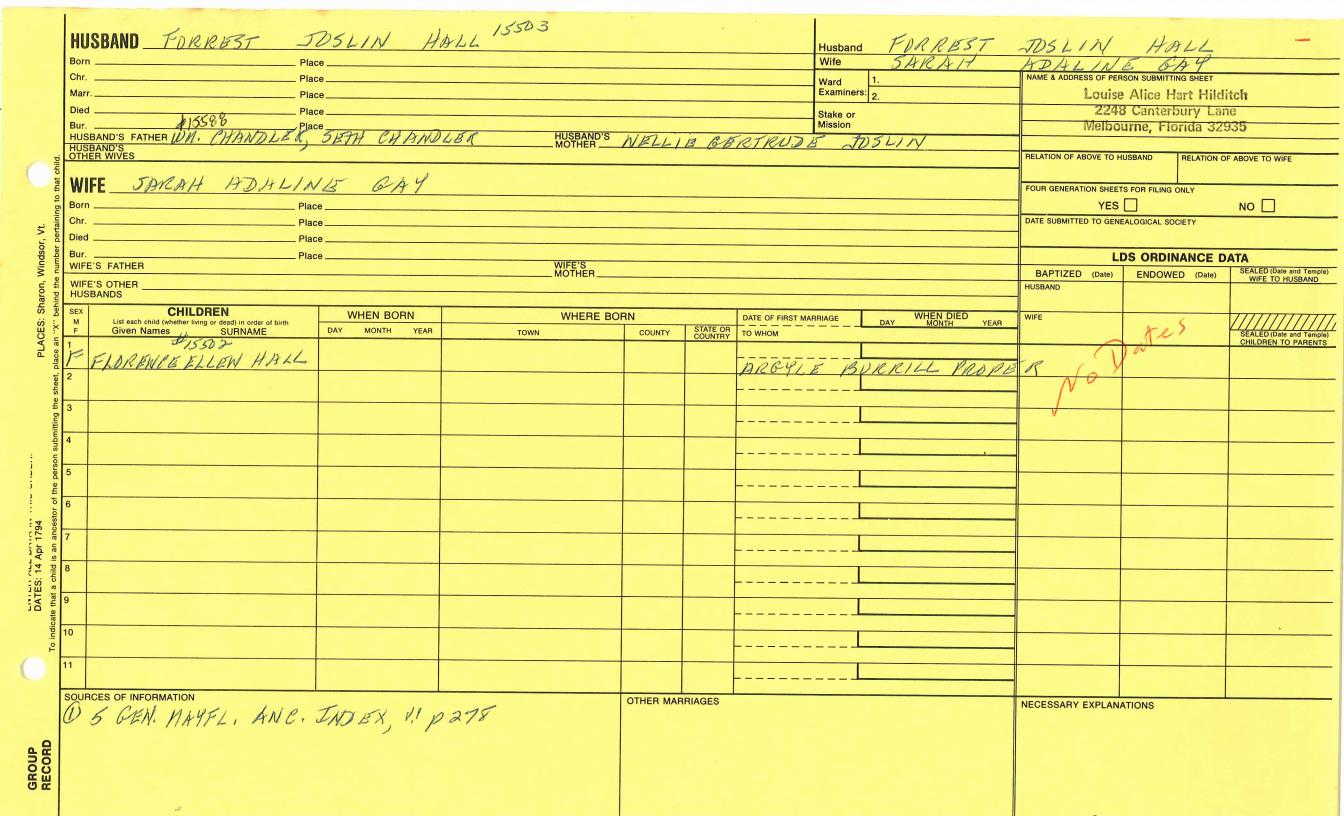 HUSBAND FORREST JOSLIN HALL 15503
Born Place
Chr. Place
Marr. Place
Died Place
Bur. Place
#15598
HUSBAND'S FATHER WM. CHANDLER, SETH CHANDLER HUSBAND'S MOTHER NELLIE GERTRUDE JOSLIN
HUSBAND'S OTHER WIVES
WIFE SARAH ADALINE GAY
Born Place
Chr. Place
Died Place
Bur. Place
WIFE'S FATHER WIFE'S MOTHER
WIFE'S OTHER HUSBANDS
Husband FORREST JOSLIN HALL
Wife SARAH ADALINE GAY
Ward Examiners: 1. 2.
Stake or Mission
NAME & ADDRESS OF PERSON SUBMITTING SHEET
Louise Alice Hart Hilditch
2248 Canterbury Lane
Melbourne, Florida 32935
RELATION OF ABOVE TO HUSBAND RELATION OF ABOVE TO WIFE
FOUR GENERATION SHEETS FOR FILING ONLY
YES NO
DATE SUBMITTED TO GENEALOGICAL SOCIETY
LDS ORDINANCE DATA
BAPTIZED (Date) ENDOWED (Date) SEALED (Date and Temple) WIFE TO HUSBAND
HUSBAND
WIFE
SEALED (Date and Temple) CHILDREN TO PARENTS
No Dates
SEX M F
CHILDREN
List each child (whether living or dead) in order of birth
Given Names SURNAME
WHEN BORN
DAY MONTH YEAR
WHERE BORN
TOWN COUNTY STATE OR COUNTRY
DATE OF FIRST MARRIAGE
TO WHOM
WHEN DIED
DAY MONTH YEAR
#15502
1 F FLORENCE ELLEN HALL ARGYLE BURRILL PROPER
2
3
4
5
6
7
8
9
10
11
SOURCES OF INFORMATION
① 5 GEN. MAYFL. ANC. INDEX, V.1 p 278
OTHER MARRIAGES
NECESSARY EXPLANATIONS
PLACES: Sharon, Windsor, Vt.
DATES: 14 Apr 1794
To indicate that a child is an ancestor of the person submitting the sheet, place an "X" behind the number pertaining to that child.
GROUP RECORD